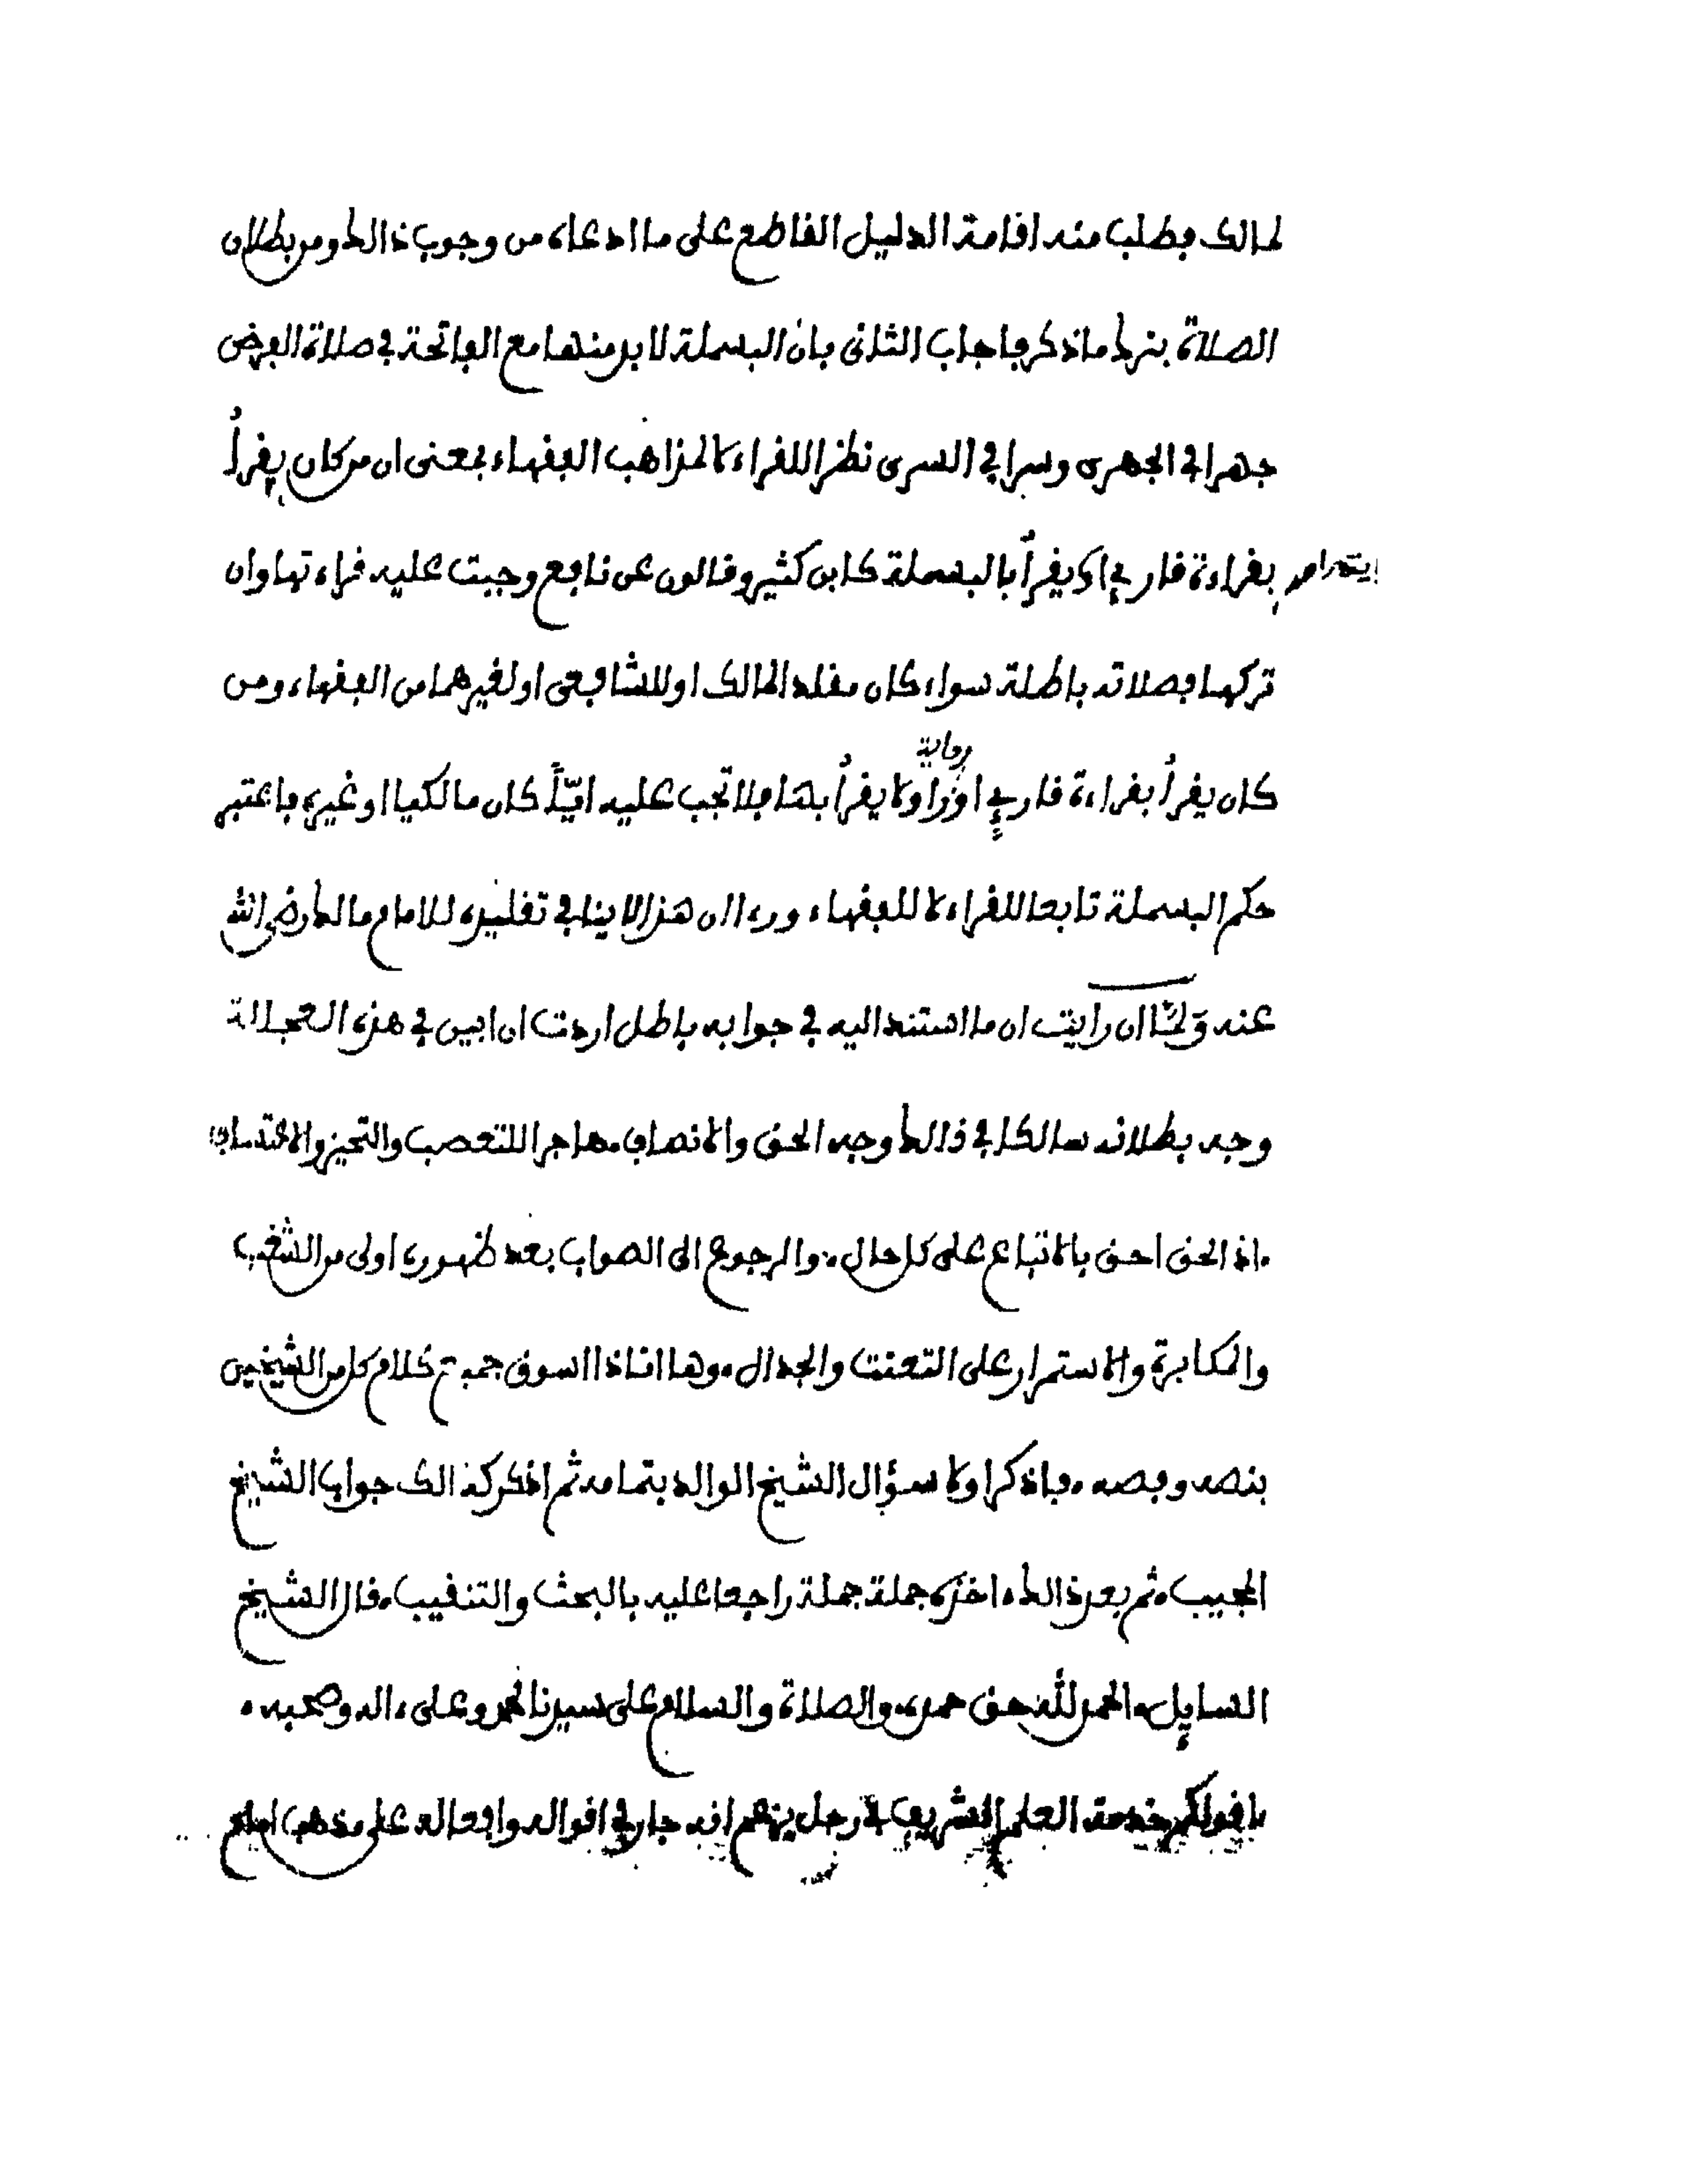 لمالك فطلب منه اقامة الدليل القاطع على ما ادعاه من وجوب ذالك ومن بطلان
الصلاة بترك ما ذكر فاجاب الثانى بان البسملة لا بد منها مع الفاتحة في صلاة الفرض
جهرا في الجهرى وسرا في السرى نظرا للقراء لا لمذاهب الفقهاء بمعنى ان من كان يقرأ
بقراءة قارىء يقرأ بالبسملة كابن كثير وقالون عن نافع وجبت عليه قراءتها وان
تركها فصلاته باطلة سواء كان مقلدا لمالك او للشافعى او لغيرهما من الفقهاء ومن
كان يقرأ بقراءة قارىء او رواية راو لا يقرأ بها فلا تجب عليه ايّاً كان مالكيا او غيره فاعتبر
حكم البسملة تابعا للقراء لا للفقهاء ورءا ان هذا لا ينافي تقليده للامام مالك رضى الله
عنه ولمّا ان رايت ان ما استند اليه في جوابه باطل اردت ان ابين في هذه العجالة
وجه بطلانه سالكا في ذالك وجه الحق والانصاف، هاجرا للتعصب والتحيز والاعتساف
، اذ الحق احق بالاتباع على كل حال، والرجوع الى الصواب بعد ظهوره اولى من الشغب
والمكابرة والاستمرار على التعنت والجدال، وها انا ذا اسوق جميع كلام كل من الشيخين
بنصه وفصه، فاذكر اولا سؤال الشيخ الوالد بتمامه ثم اذكر كذالك جواب الشيخ
المجيب، ثم بعد ذالك، اخذه جملة جملة راجعا عليه بالبحث والتنقيب، قال الشيخ
السايل، الحمد لله حق حمده، والصلاة والسلام على سيدنا محمد وعلى ءاله وصحبه،
ما قولكم خدمة العلم الشريف في رجل يزعم انه جار في اقواله وافعاله على مذهب امام